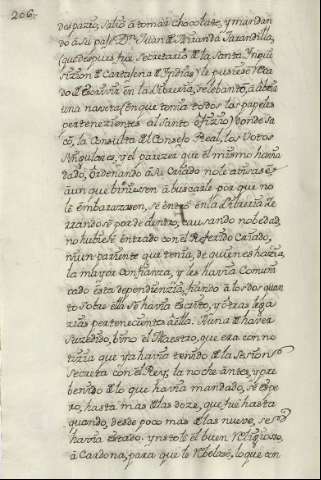 206.
despazio, salio a tomar chocolate, y mandan
do a su paje Dn. Juan de Miranda Tarandilla,
(que despues fue secretario de la Santa Ynqui
sizion de Cartajena de Yndias) le pusiese
do de escrivir en la libreria, se lebanto, a abrir
una naveta (en que tenia todos los papeles
pertenezientes al Santo ofizio) donde sa
co, la Consulta del Consejo Real, los Votos
singulares, y el parezer que el mismo havia
dado, ordenando a su Criado no le avisase
aun que biniesen a buscarle por que no
le embarazasen, se entro en la libreria ze
rrandose por de dentro, causando nobedad,
no hubiese entrado con el Referido Criado,
ni un pariente que tenia, de quien se hazia,
la mayor Confianza, y les havia Comuni
cado esta dependienzia, fiando a los dos quan
to sobre ella se havia escrito, y otras lega
zias pertenecientes a ella. de haver
suzedido, bino el Maestro, que era con no
tizia que ya havia tenido de la Sesion
secreta con el Rey, la noche antes, y pre
benido de lo que havia mandado, se espe
ro, hasta mas de las doze, que fue hasta
quando, desde poco mas de las nueve, se
havia estado. ynstole el buen Religioso,
a Cardona, para que le Rebelase, lo que con